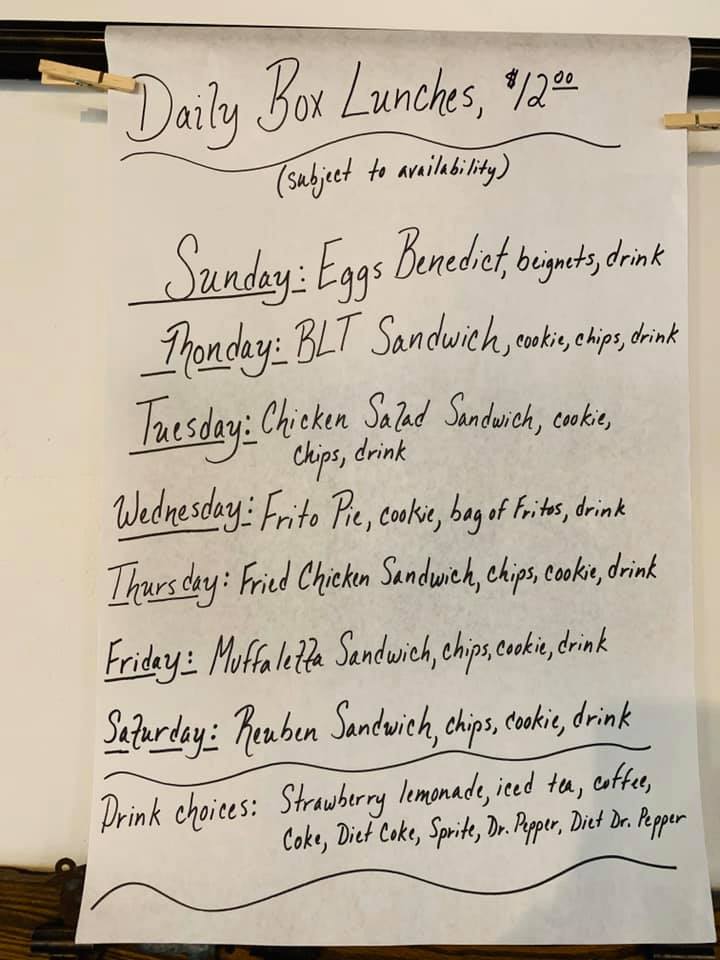 Daily Box Lunches, $12.00
(subject to availability)
Sunday: Eggs Benedict, beignets, drink
Monday: BLT Sandwich, cookie, chips, drink
Tuesday: Chicken Salad Sandwich, cookie,
chips, drink
Wednesday: Frito Pie, cookie, bag of Fritos, drink
Thursday: Fried Chicken Sandwich, chips, cookie, drink
Friday: Muffaletta Sandwich, chips, cookie, drink
Saturday: Reuben Sandwich, chips, cookie, drink
Drink choices: Strawberry lemonade, iced tea, coffee,
Coke, Diet Coke, Sprite, Dr. Pepper, Diet Dr. Pepper